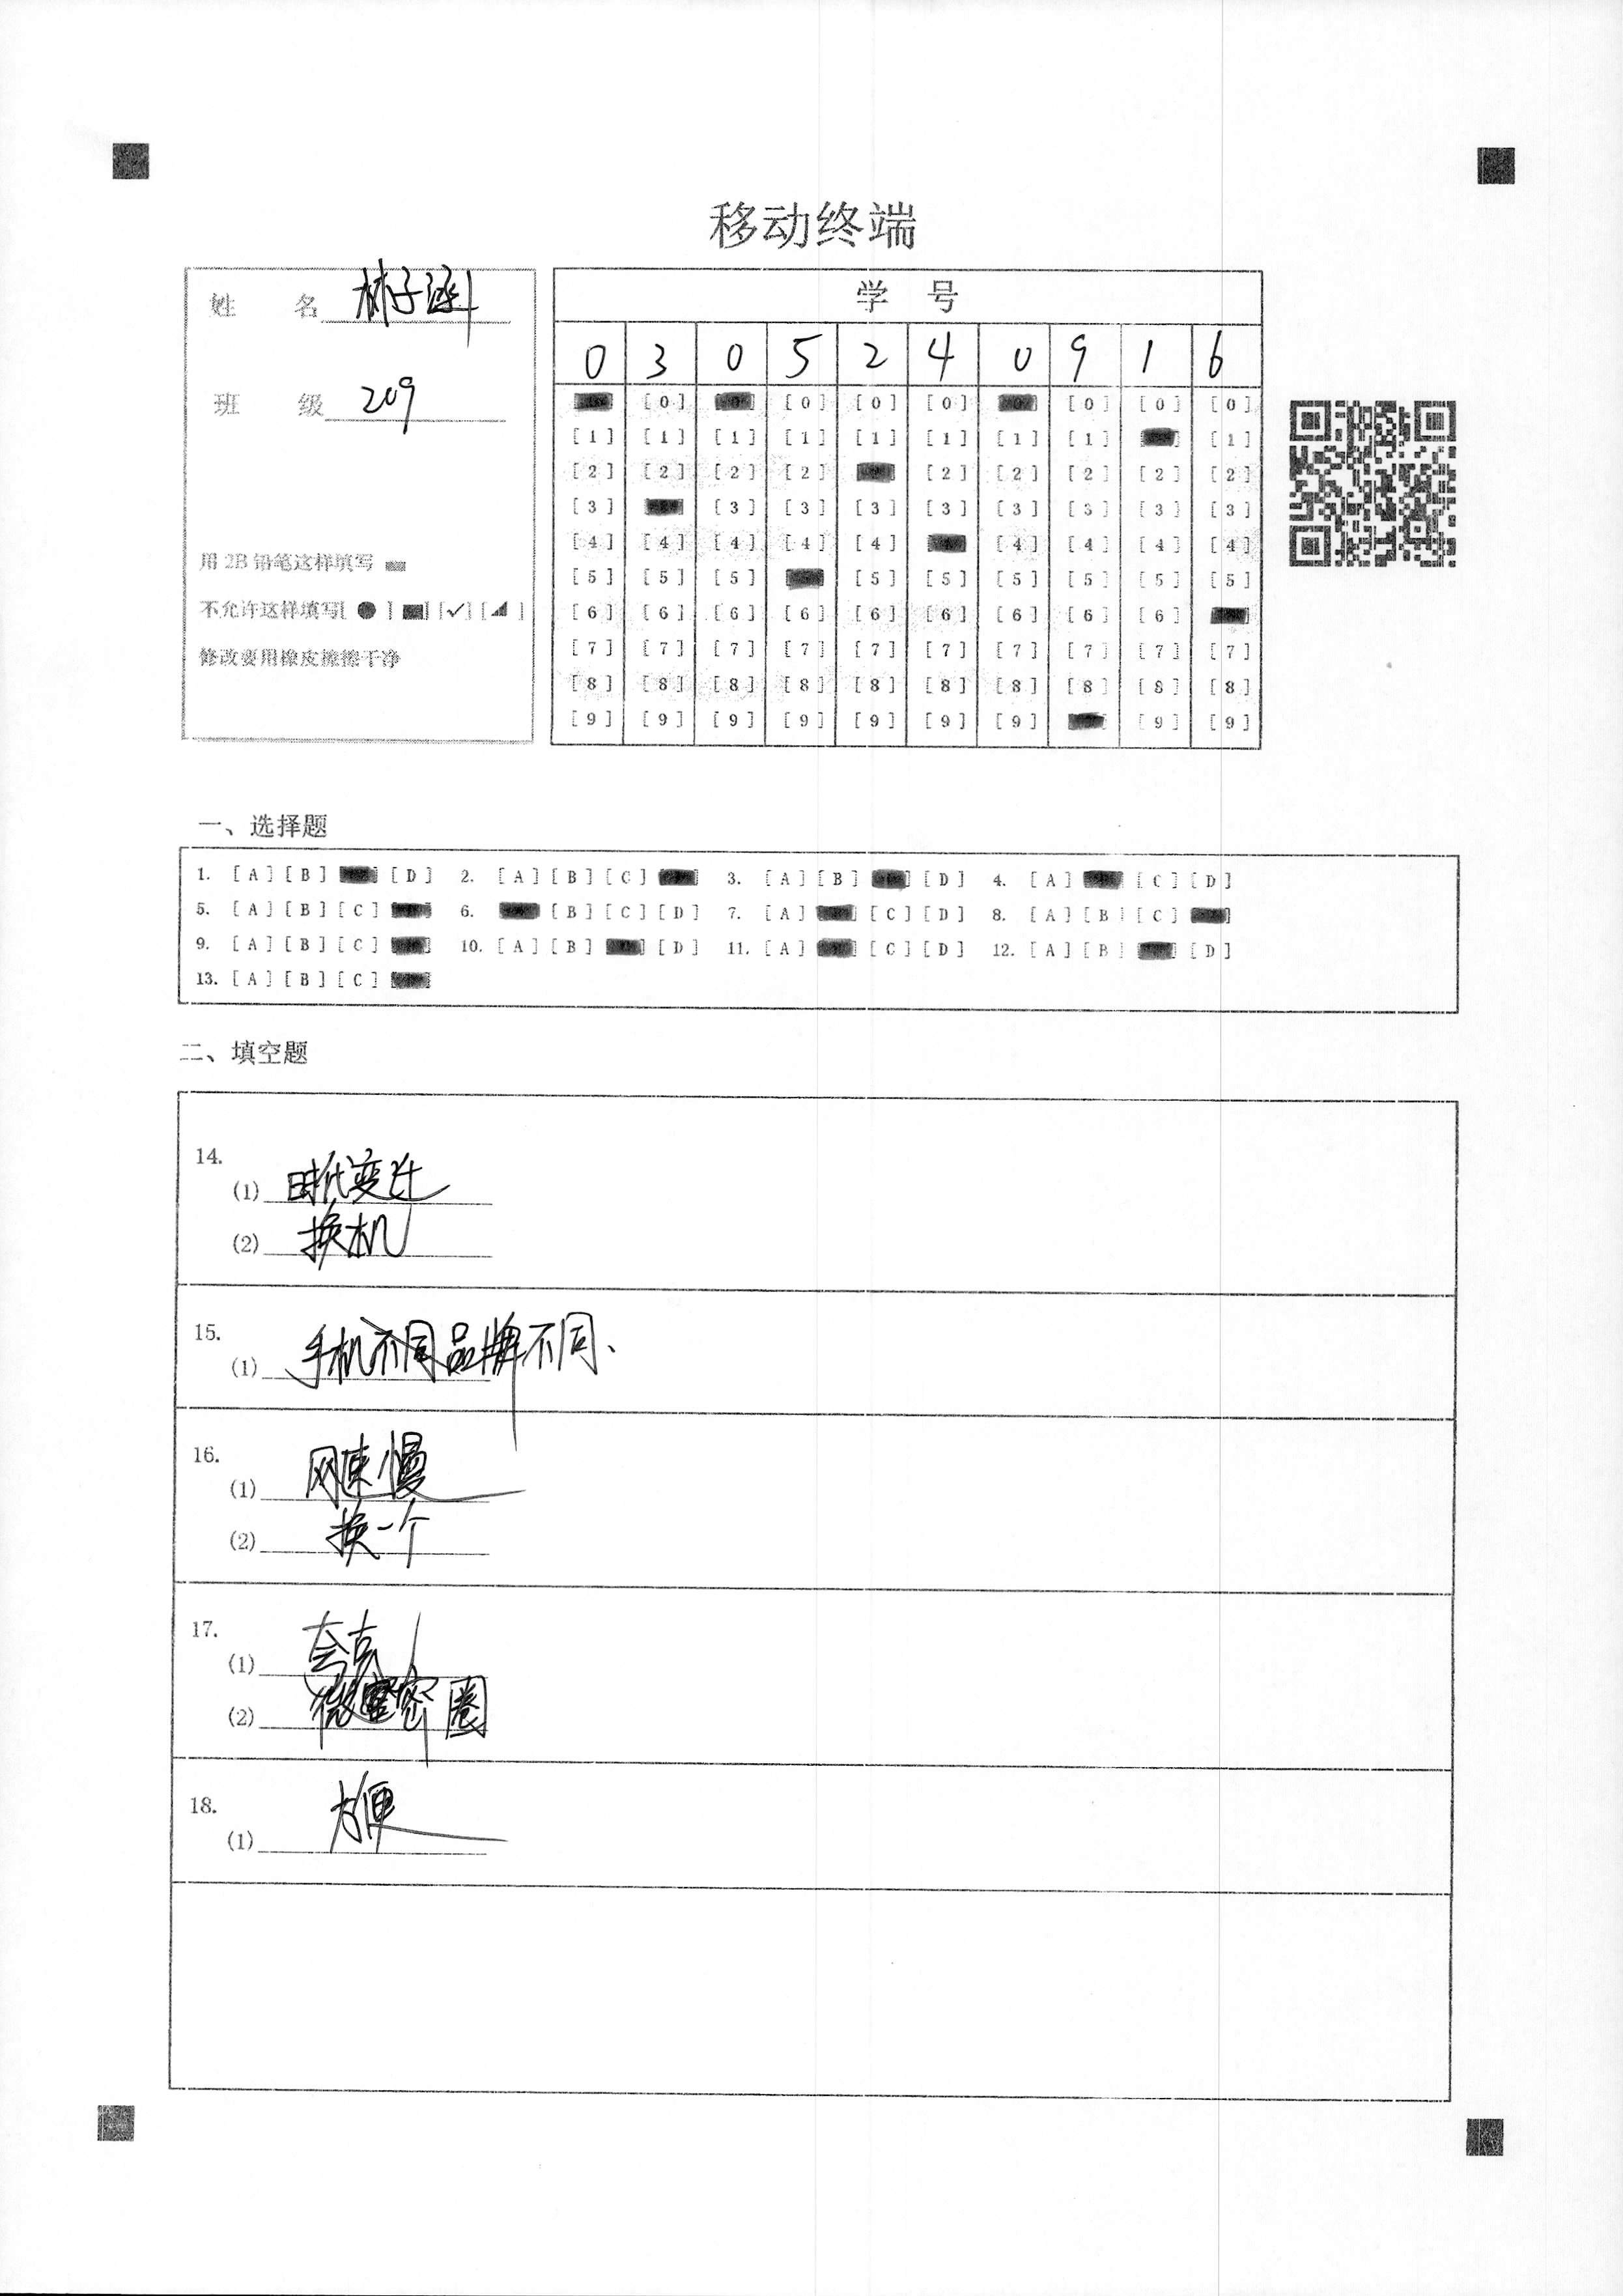 移动终端
姓 名 林子涵
班 级 209
用 2B 铅笔这样填写
不允许这样填写[ ● ] [✓] [ ]
修改要用橡皮擦擦干净
学 号
0 3 0 5 2 4 0 9 1 6
[0] [0] [0] [0] [0] [0] [0]
[1] [1] [1] [1] [1] [1] [1] [1] [1]
[2] [2] [2] [2] [2] [2] [2] [2] [2]
[3] [3] [3] [3] [3] [3] [3] [3] [3]
[4] [4] [4] [4] [4] [4] [4] [4] [4]
[5] [5] [5] [5] [5] [5] [5] [5] [5]
[6] [6] [6] [6] [6] [6] [6] [6] [6]
[7] [7] [7] [7] [7] [7] [7] [7] [7] [7]
[8] [8] [8] [8] [8] [8] [8] [8] [8] [8]
[9] [9] [9] [9] [9] [9] [9] [9] [9]
一、选择题
1. [A] [B] [D] 2. [A] [B] [C] 3. [A] [B] [D] 4. [A] [C] [D]
5. [A] [B] [C] 6. [B] [C] [D] 7. [A] [C] [D] 8. [A] [B] [C]
9. [A] [B] [C] 10. [A] [B] [D] 11. [A] [C] [D] 12. [A] [B] [D]
13. [A] [B] [C]
二、填空题
14.
(1) 时代变迁
(2) 换机
15.
(1) 手机品牌不同、
16.
(1) 网速慢
(2) 换一个
17.
(1) 夸克
(2) 微密圈
18.
(1) 方便